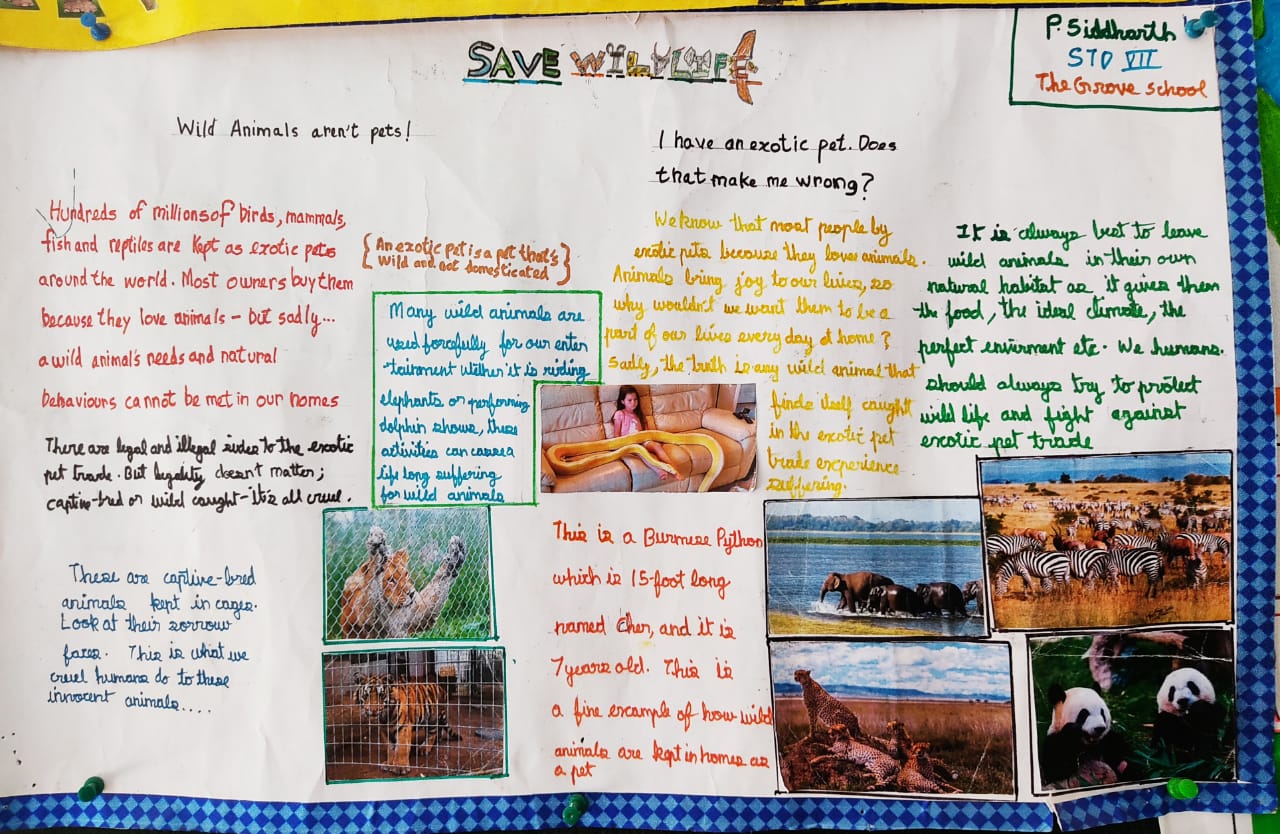 SAVE WILDLIFE
P. Siddharth
STD VII
The Grove School
Wild Animals aren't pets!
Hundreds of millions of birds, mammals,
fish and reptiles are kept as exotic pets
around the world. Most owners buy them
because they love animals - but sadly...
a wild animal's needs and natural
behaviours cannot be met in our homes
There are legal and illegal sides to the exotic
pet trade. But legality doesn't matter;
captive-bred or wild caught - it's all cruel.
These are captive-bred
animals kept in cages.
Look at their sorrow
faces. This is what we
cruel humans do to these
innocent animals....
{An exotic pet is a pet that's
wild and not domesticated}
Many wild animals are
used forcefully for our enter
-tainment wither it is riding
elephants or performing
dolphin shows, these
activities can cause a
life long suffering
for wild animals
I have an exotic pet. Does
that make me wrong?
We know that most people by
exotic pets because they love animals.
Animals bring joy to our lives, so
why wouldn't we want them to be a
part of our lives every day at home?
sadly, the truth is any wild animal that
finds itself caught
in the exotic pet
trade experience
suffering.
This is a Burmese Python
which is 15-foot long
named Cher, and it is
7 years old. This is
a fine example of how wild
animals are kept in homes as
a pet
It is always best to leave
wild animals in their own
natural habitat as it gives them
the food, the ideal climate, the
perfect envirment etc. We humans.
should always try to protect
wild life and fight against
exotic pet trade